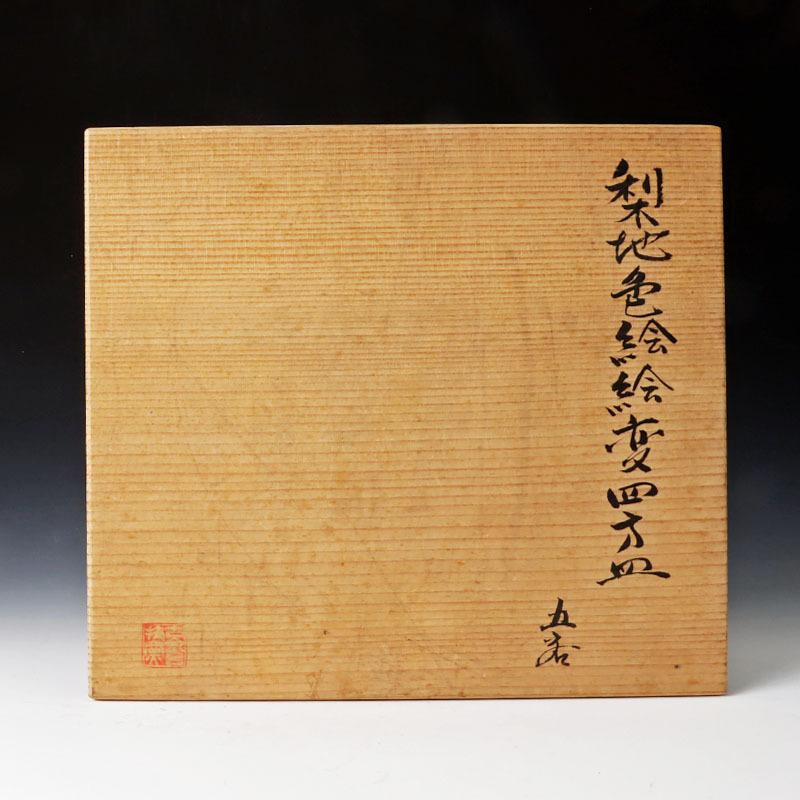 梨地色絵絵変四方皿
五客